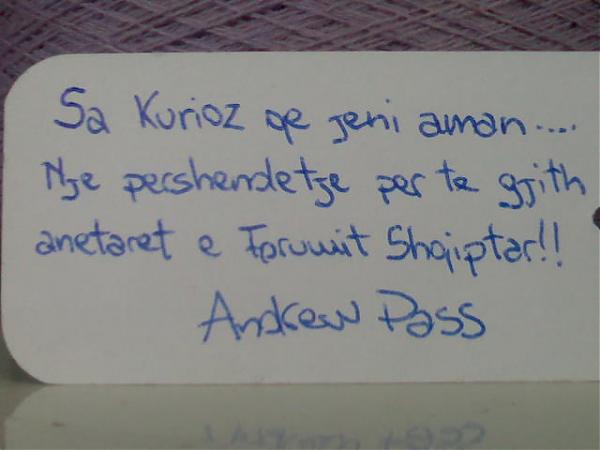 Sa Kurioz qe jeni aman....
Nje pershendetje per te gjith
anetaret e Forumit Shqiptar!!
Andrew Pass